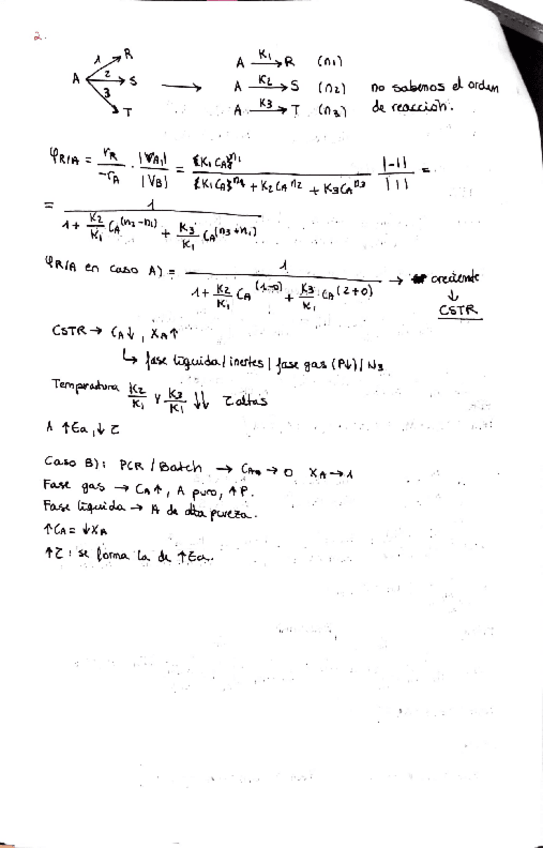 2.
A 1 → R
2 → S
3 → T
→ A K1→ R (n1)
A K2→ S (n2) no sabemos el orden
A K3→ T (n3) de reacción.
φR/A = rR / -rA · |νA| / |νB| = K1 CA^n1 / (K1 CA^n1 + K2 CA^n2 + K3 CA^n3) |-1| / |1| =
= 1 / (1 + K2/K1 CA^(n2-n1) + K3/K1 CA^(n3+n1))
φR/A en caso A) = 1 / (1 + K2/K1 CA^(1-0) + K3/K1 CA^(2+0)) → creciente
↓
CSTR
CSTR → CA↓, XA↑
↳ fase líquida / inertes / fase gas (P↓) / N2
Temperatura K2/K1 y K3/K1 ↓↓ T altas
A ↑Ea, ↓ T
Caso B): PCR / Batch → CA → 0 XA → 1
Fase gas → CA↑, A puro, ↑P.
Fase líquida → A de alta pureza.
↑CA = ↓XA
↑T: se forma la de ↑Ea.